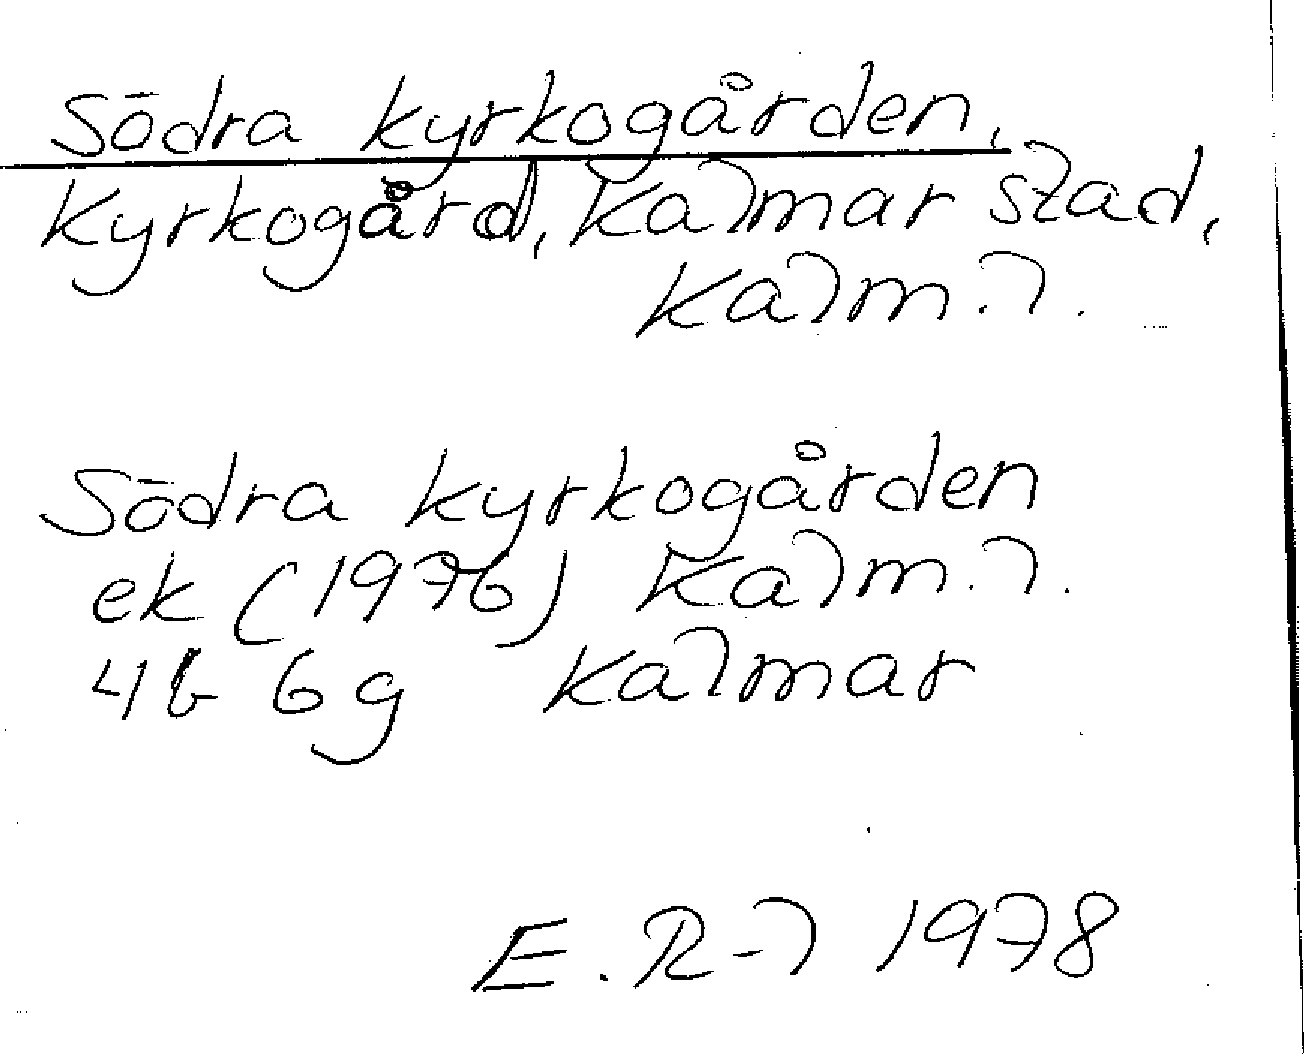 Södra kyrkogården,
Kyrkogård, Kalmar stad,
Kalm. l.
Södra kyrkogården
ek (1976) Kalm. l.
4b 6g Kalmar
E. R-l 1978